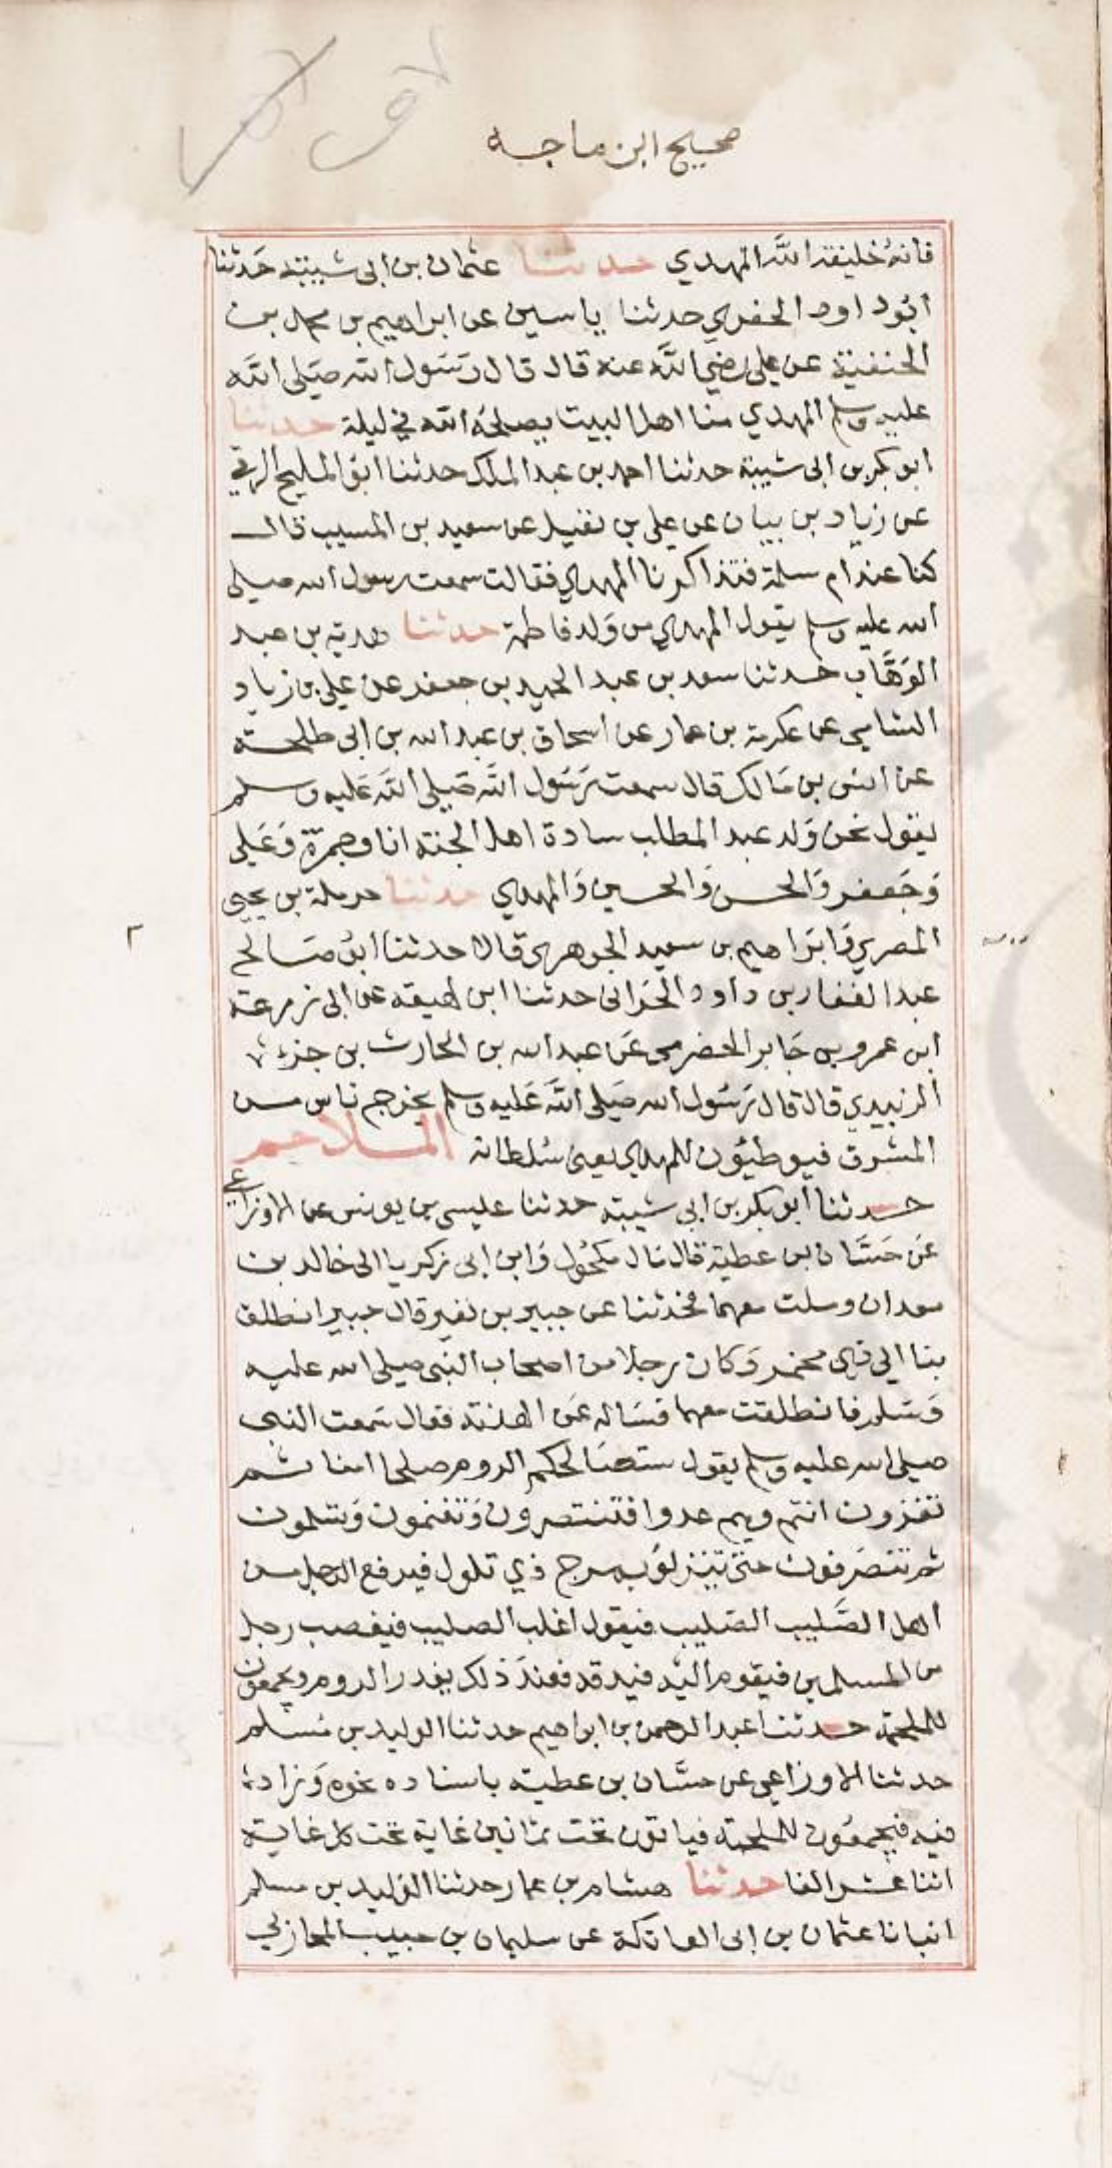 صحيح ابن ماجه
فانهُ خليفة اللَّه المهدي حدثنا عثمان بن ابى شيبة حَدثنا
ابُود اود الحفري حدثنا ياسين عن ابراهيم بن محمد بن
الحنفية عن على رضي اللَّه عنه قال قال رَسَول الله صَلى الله
عليه وسلم المهدي منا اهل البيت يصلحُه الله في ليلة حدثنا
ابو بكر بن ابى شيبة حدثنا احمد بن عبد الملك حدثنا ابو المليح الرقي
عن زياد بن بيان عن علي بن نفيل عن سعيد بن المسيب قال
كنا عند ام سلمة فتذاكرنا المهدي فقالت سمعت رسول الله صلى
الله عليه وسلم يقول المهدي من وَلد فاطمة حدثنا هدية بن عبد
الوَهَّاب حدثنا سعد بن عبد الحميد بن جعفر عن علي بن زياد
اليشامي عن عكرمة بن عمار عن اسحاق بن عبد الله بن ابى طلحة
عن انس بن مَالك قال سمعت رَسَول اللَّه صَلى اللَّه عَليه وسلم
يقول نحن وَلد عبد المطلب سادة اهل الجنة انا وحمزة وَعَلى
وَجَعفر وَالحسن وَالحسين وَالمهدي حدثنا حرملة بن يحيى
المصري وَابرَاهيم بن سعيد الجوهرى قالا حدثنا ابوُ صَالح
عبد الغفار بن داود الحَرانى حدثنا ابن لهيعه عن ابى زرعة
ابن عمرو بن جَابر الحضرمى عَن عبد الله بن الحارث بن جزء
الزبيدي قال قال رَسَول الله صَلى اللَّه عَليه وسلم يخرج ناس من
المشرق فيوطئون للمهدي يعنى سُلطانه الملاحم
حدثنا أبو بكر بن ابى شيبة حدثنا عليسى بن يونس عن الاوزاعي
عَن حَسَّان بن عطية قال مال مكحُول وَابن ابى زكريا الى خالد بن
معدان وملت معهما فحدثنا عن جبير بن نفير قال جبير انطلق
بنا الى ذي مخمر وَكان رجلا من اصحاب النبى صلى الله عليه
وَسَلم فانطلقت معهما فسَاله عَن الهدنة فقال سَمعت النبى
صلى الله عليه وسلم يقول ستصَالحكم الروم صلحا امنا ثم
تغزون انتم وهم عدوا فتنتصرون وَتغنمون وَتسلمون
ثم تنصَرفون حتى تنزلوُ بمرج ذي تلول فيرفع الرجل من
اهل الصَّليب الصَليب فيقول اغلب الصليب فيغصب رجل
من المسلمين فيقوم اليْه فيدقه فعندَ ذلك يغدر الروم ويجمعون
للملحمة حدثنا عبد الرحمن بن ابراهيم حدثنا الوليد بن مُسلم
حدثنا الاوزاعي عن حسَّان بن عطية باسناده نحوه وَزاد
فيه فيجمعُون للملحمة فياتون تحت ثمانين غاية تحت كل غاية
اثنا عشر الفا حدثنا هشام بن عمار حدثنا الوَليد بن مسلم
انبانا عثمان بن ابى العاتكة عن سليمان بن حبيب المحازلي
٢